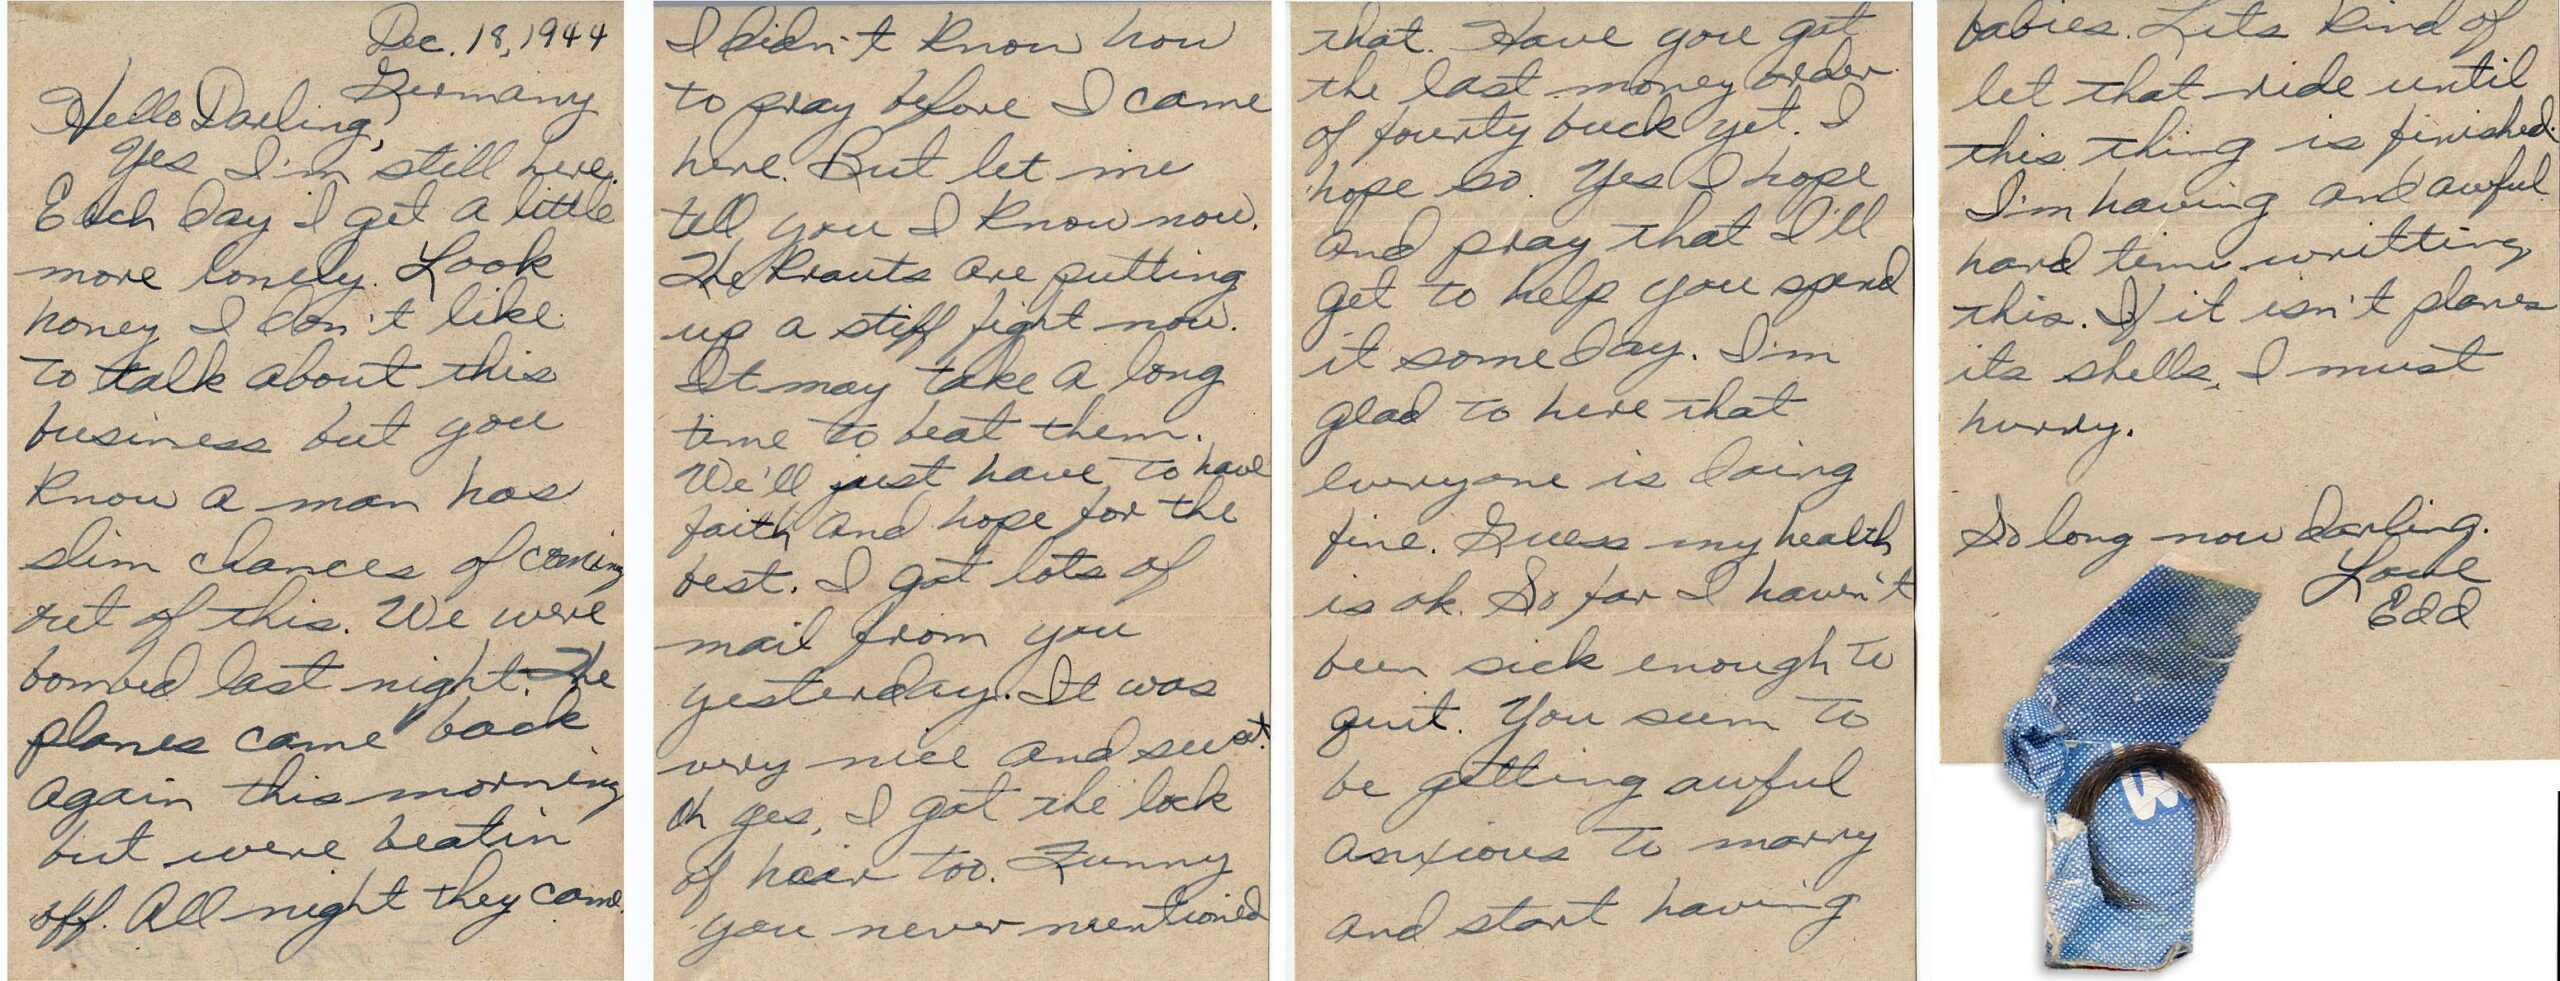 Dec. 18, 1944
Germany
Hello Darling,
Yes I'm still here.
Each day I get a little
more lonely. Look
honey I don't like
to talk about this
business but you
know a man has
slim chances of coming
out of this. We were
bombed last night. The
planes came back
again this morning
but were beatin
off. All night they come.
I didn't know how
to pray before I came
here. But let me
tell you I know now.
The Krauts are putting
up a stiff fight now.
It may take a long
time to beat them.
We'll just have to have
faith and hope for the
best. I got lots of
mail from you
yesterday. It was
very nice and sweet.
Oh yes, I got the lock
of hair too. Funny
you never mentioned
that. Have you got
the last money order
of fourty buck yet. I
hope so. Yes I hope
and pray that I'll
get to help you spend
it someday. I'm
glad to here that
everyone is doing
fine. Guess my health
is ok. So far I haven't
been sick enough to
quit. You seem to
be getting awful
anxious to marry
and start having
babies. Lets kind of
let that ride until
this thing is finished.
I'm having and awful
hard time writting
this. If it isn't planes
its shells. I must
hurry.
So long now darling.
Love
Edd